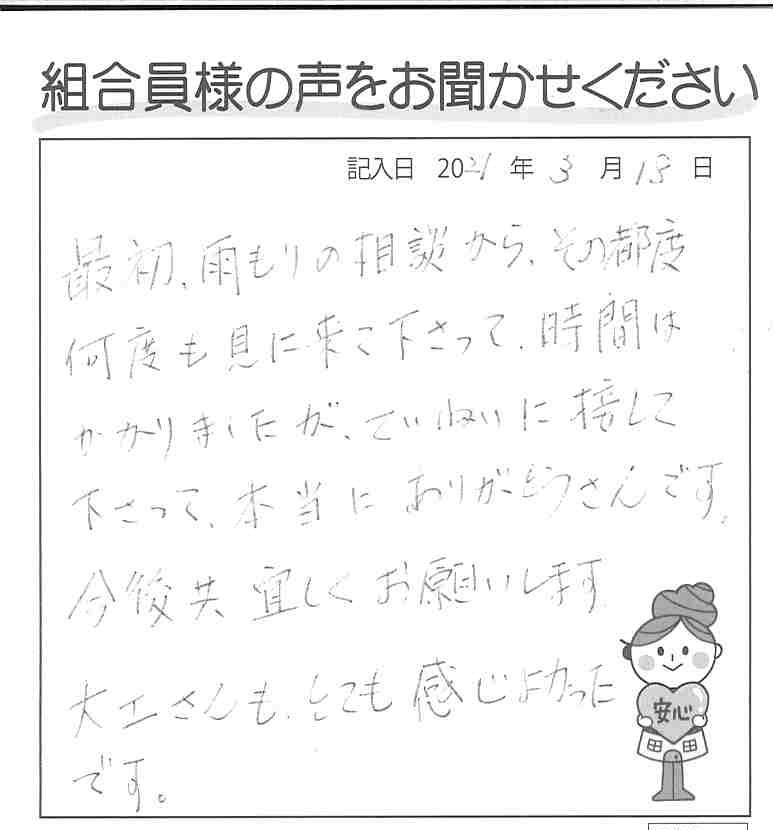 組合員様の声をお聞かせください
記入日 2021年 3月18日
最初、雨もりの相談から、その都度
何度も見に来て下さって、時間は
かかりましたが、ていねいに接して
下さって、本当にありがとうさんです。
今後共宜しくお願いします。
大工さんも、とても感じよかった
です。
安心